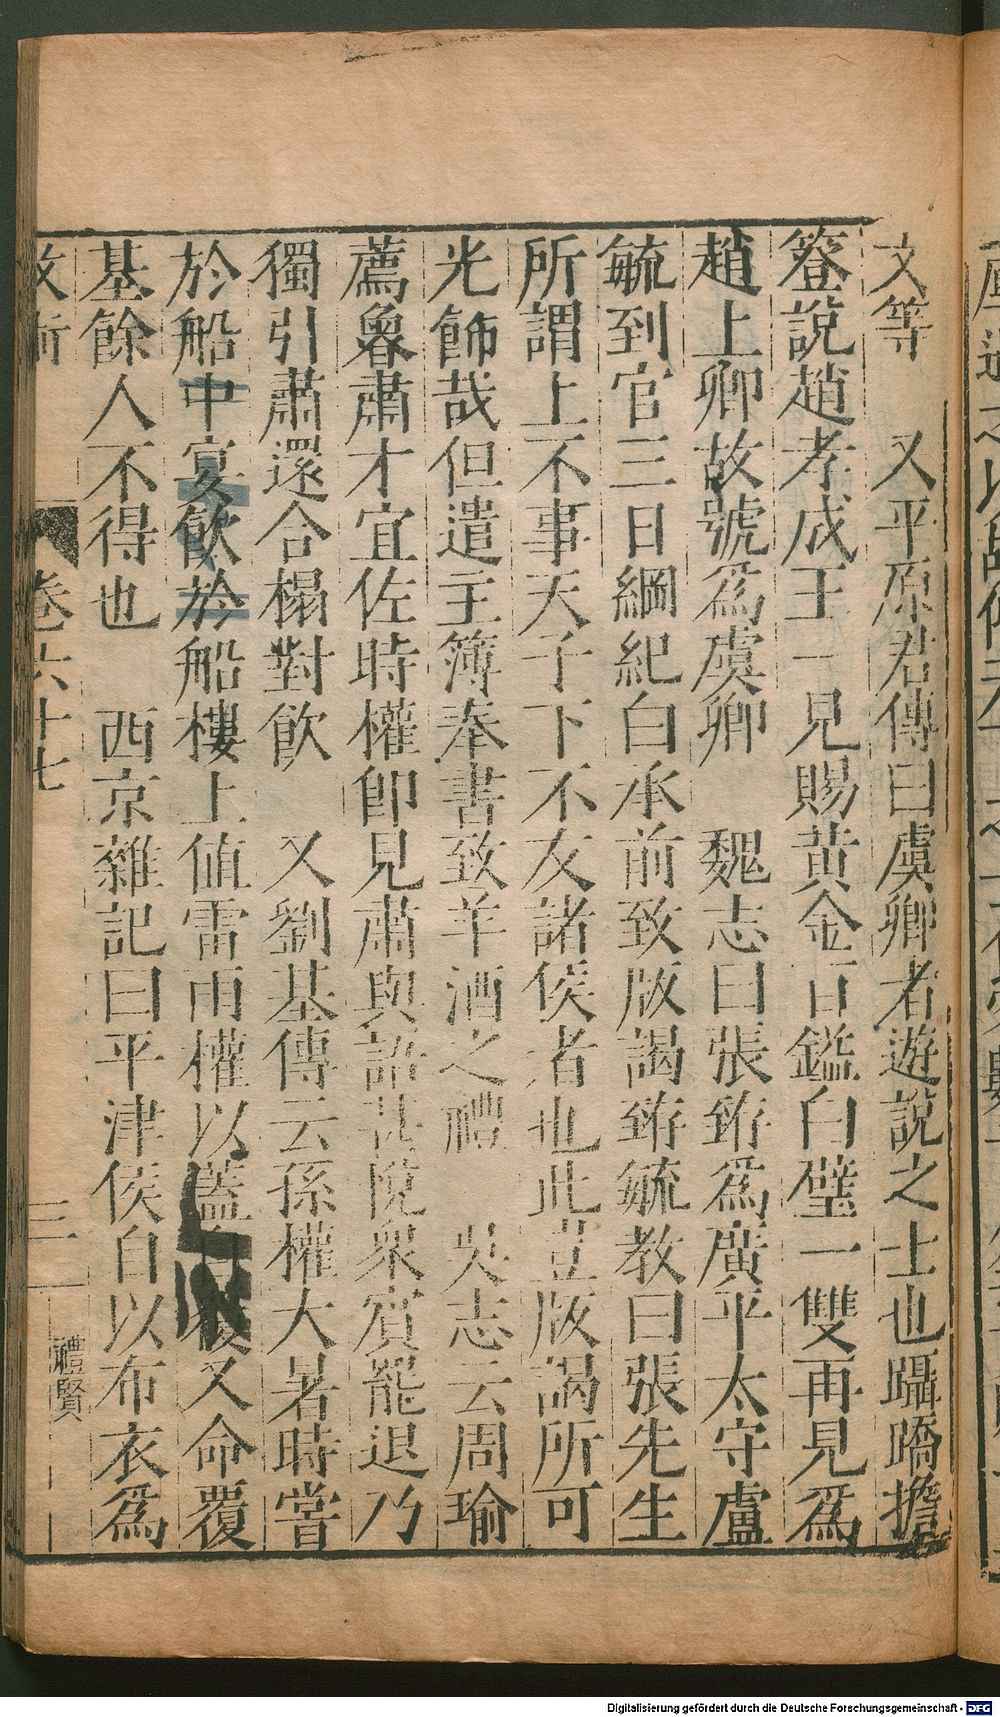 文等　又平原君傳曰虞卿者遊說之士也躡蹻擔
簦說趙孝成王一見賜黃金百鎰白璧一雙再見爲
趙上卿故號爲虞卿　魏志曰張臶爲廣平太守盧
毓到官三日綱紀白承前致版謁臶毓教曰張先生
所謂上不事天子下不友諸侯者也此豈版謁所可
光飾哉但遣主簿奉書致羊酒之禮　吳志云周瑜
薦魯肅才宜佐時權卽見肅與語甚悅衆賓罷退乃
獨引肅還合榻對飲　又劉基傳云孫權大暑時嘗
於船中宴飲於船樓上值雷雨權以蓋自覆又命覆
基餘人不得也　西京雜記曰平津侯自以布衣爲
卷六十七　三　禮賢
Digitalisierung gefördert durch die Deutsche Forschungsgemeinschaft - DFG